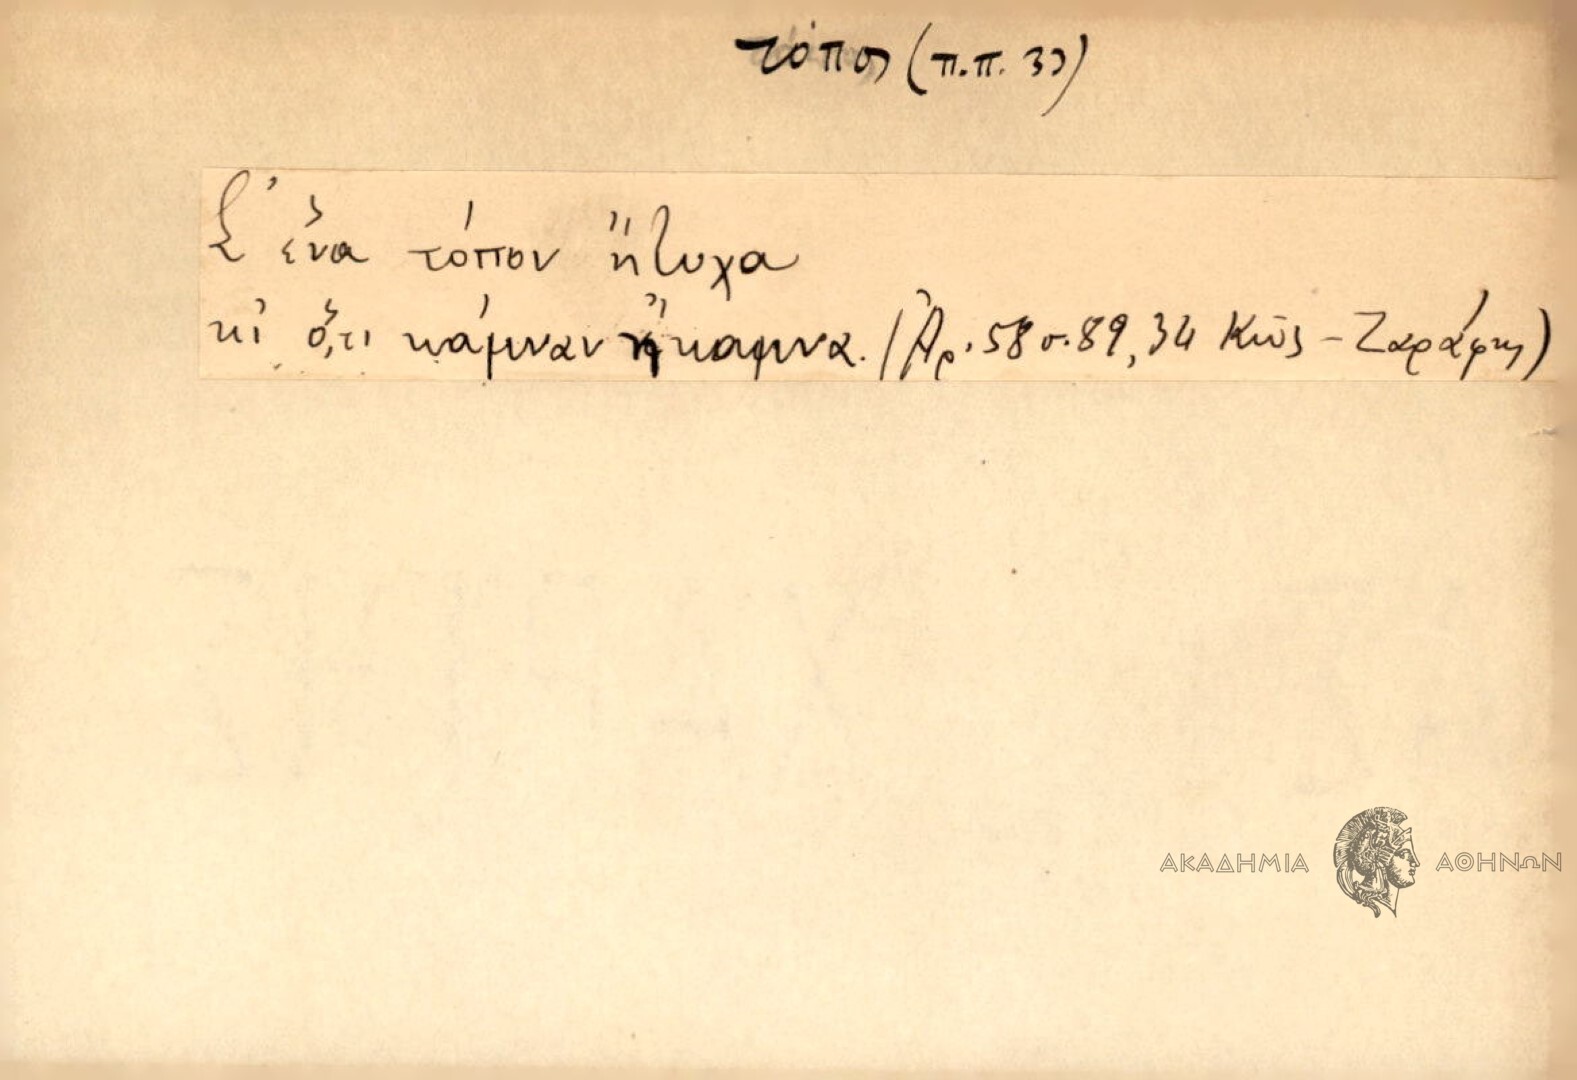 τόπος (π.π. 33)
Σ' ἕνα τόπον ἤτυχα
κι' ὅ,τι κάμναν ἤκαμνα. (Ἀρ. 58 σ. 89, 34 Κῶς - Ζαράφτης)
ΑΚΑΔΗΜΙΑ ΑΘΗΝΩΝ